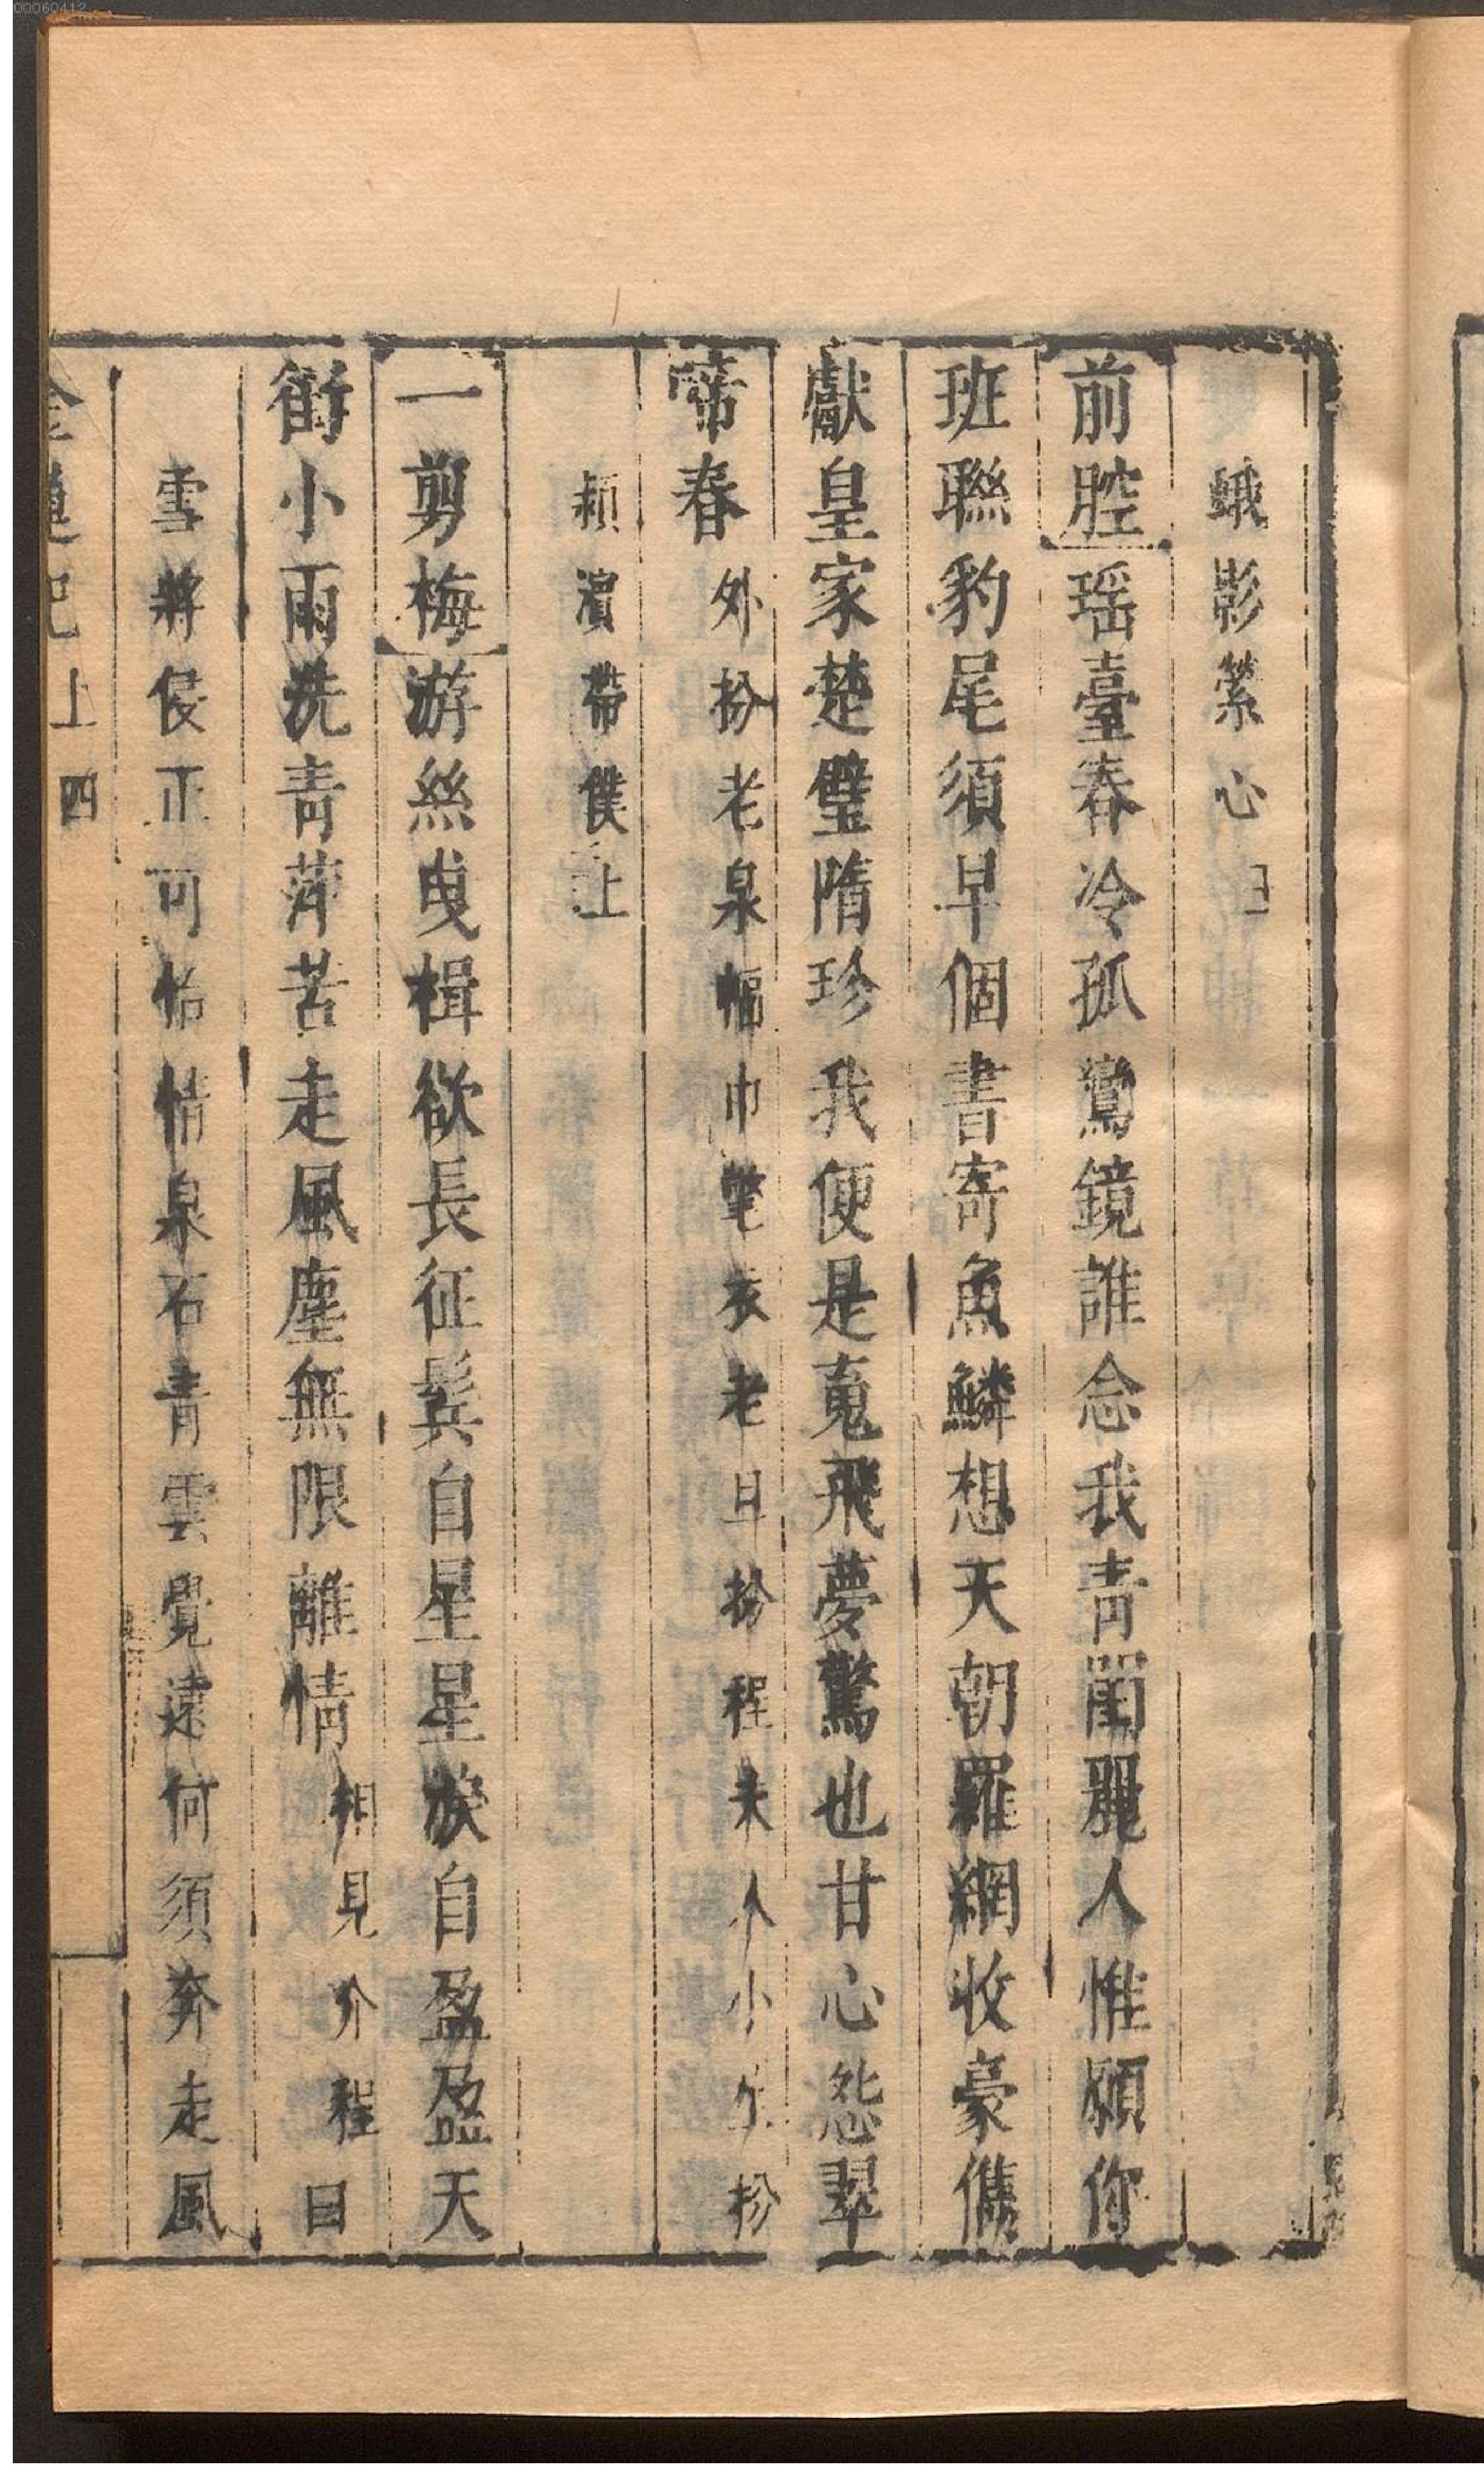 蛾影縈心
前腔瑶臺春冷孤鸞鏡誰念我青閨麗人惟願你
班聯豹尾須早個書寄魚鱗想天朝羅網收豪儁
獻皇家楚璧隋珍我便是䰟飛夢驚也甘心怨翠
啼春外扮老泉幅巾氅衣老旦扮程夫人小生扮
頴濵帶僕上
一剪梅游絲曳楫欲長征鬂自星星㳺自盈盈天
街小雨洗青萍苦走風塵無限離情相見介程曰
雪將侵正可怡情泉石青雲覺遠何須奔走風
上四
00060412